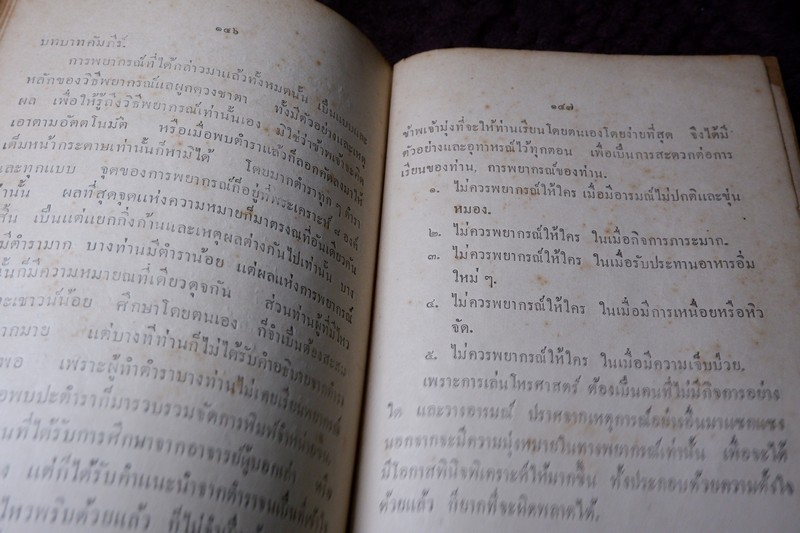 ๑๔๖
บทบาทคัมภีร์.
การพยากรณ์ที่ได้กล่าวมาแล้วทั้งหมดนั้น เป็นแบบและ
หลักของวิธีพยากรณ์และผูกดวงชาตา ทั้งมีตัวอย่างและเหตุ
ผล เพื่อให้รู้ถึงวิธีพยากรณ์เท่านั้นเอง มิใช่ว่าข้าพเจ้าจะคิด
เอาตามอัตตโนมัติ หรือเมื่อพบตำราแล้วก็ลอกคัดลงมาให้
เต็มหน้ากระดาษเท่านั้นก็หามิได้ โดยมากตำราทุก ๆ ตำรา
และทุกแบบ จุดของการพยากรณ์ก็อยู่ที่พระเคราะห์ ๘ องค์
เท่านั้น ผลที่สุดจุดแห่งความหมายก็มาตรงณที่อันเดียวกัน
สิ้น เป็นแต่แยกกิ่งก้านและเหตุผลต่างกันไปเท่านั้น บาง
มีตำรามาก บางท่านมีตำราน้อย แต่ผลแห่งการพยากรณ์
นั้นก็มีความหมายณที่เดียวดุจกัน ส่วนท่านผู้ที่มีไหว
ะเชาวน์น้อย ศึกษาโดยตนเอง ก็จำเป็นต้องสะสม
ากมาย แต่บางทีท่านก็ไม่ได้รับคำอธิบายจากตำรา
พอ เพราะผู้ทำตำราบางท่านไม่เคยเรียนพยากรณ์
อพบปะตำราก็มารวบรวมจัดการพิมพ์จำหน่ายขึ้น
นที่ได้รับการศึกษาจากอาจารย์ผู้บอกเล่า หรือ
ง แต่ก็ได้รับคำแนะนำจากตำราจนเป็นที่เข้าใจ
ไหวพริบด้วยแล้ว
๑๔๗
ข้าพเจ้ามุ่งที่จะให้ท่านเรียนโดยตนเองโดยง่ายที่สุด จึงได้มี
ตัวอย่างและอุทาหรณ์ไว้ทุกตอน เพื่อเป็นการสะดวกต่อการ
เรียนของท่าน. การพยากรณ์ของท่าน.
๑. ไม่ควรพยากรณ์ให้ใคร เมื่อมีอารมณ์ไม่ปกติและขุ่น
หมอง.
๒. ไม่ควรพยากรณ์ให้ใคร ในเมื่อกิจการภาระมาก.
๓. ไม่ควรพยากรณ์ให้ใคร ในเมื่อรับประทานอาหารอิ่ม
ใหม่ ๆ.
๔. ไม่ควรพยากรณ์ให้ใคร ในเมื่อมีการเหนื่อยหรือหิว
จัด.
๕. ไม่ควรพยากรณ์ให้ใคร ในเมื่อมีความเจ็บป่วย.
เพราะการเล่นโหราศาสตร์ ต้องเป็นคนที่ไม่มีกิจการอย่าง
ใด และวางอารมณ์ ปราศจากเหตุการณ์อย่างอื่นมาแซกแซง
นอกจากจะมีความมุ่งหมายในทางพยากรณ์เท่านั้น เพื่อจะได้
มีโอกาสพินิจพิเคราะห์ให้มากขึ้น ทั้งประกอบด้วยความตั้งใจ
ด้วยแล้ว ก็ยากที่จะผิดพลาดได้.